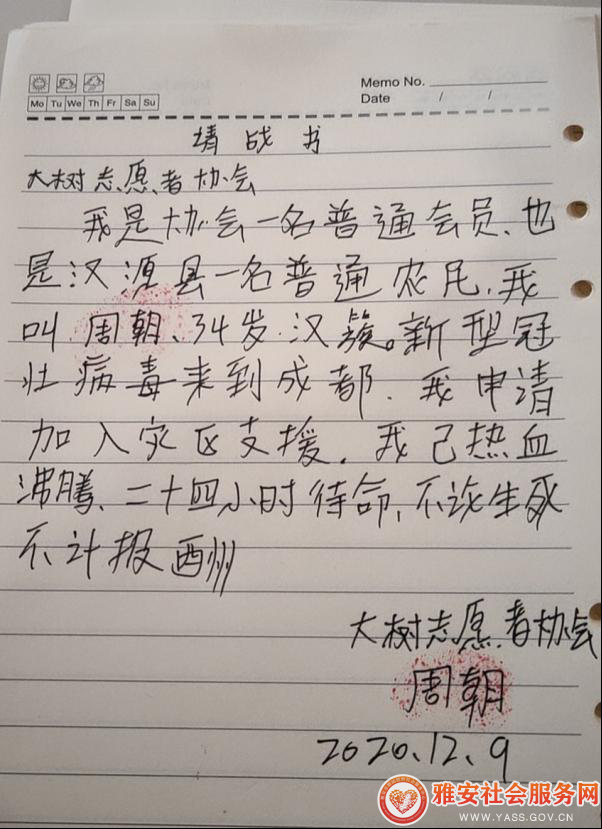 Memo No.
Mo Tu We Th Fr Sa Su
Date / /
请战书
大树志愿者协会
我是协会一名普通会员、也
是汉源县一名普通农民，我
叫周朝、34岁.汉族。新型冠
壮病毒来到成都．我申请
加入灾区支援．我已热血
沸腾、二十四小时待命,不论生死
不计报酬
大树志愿者协会
周朝
2020.12.9
雅安社会服务网
WWW.YASS.GOV.CN